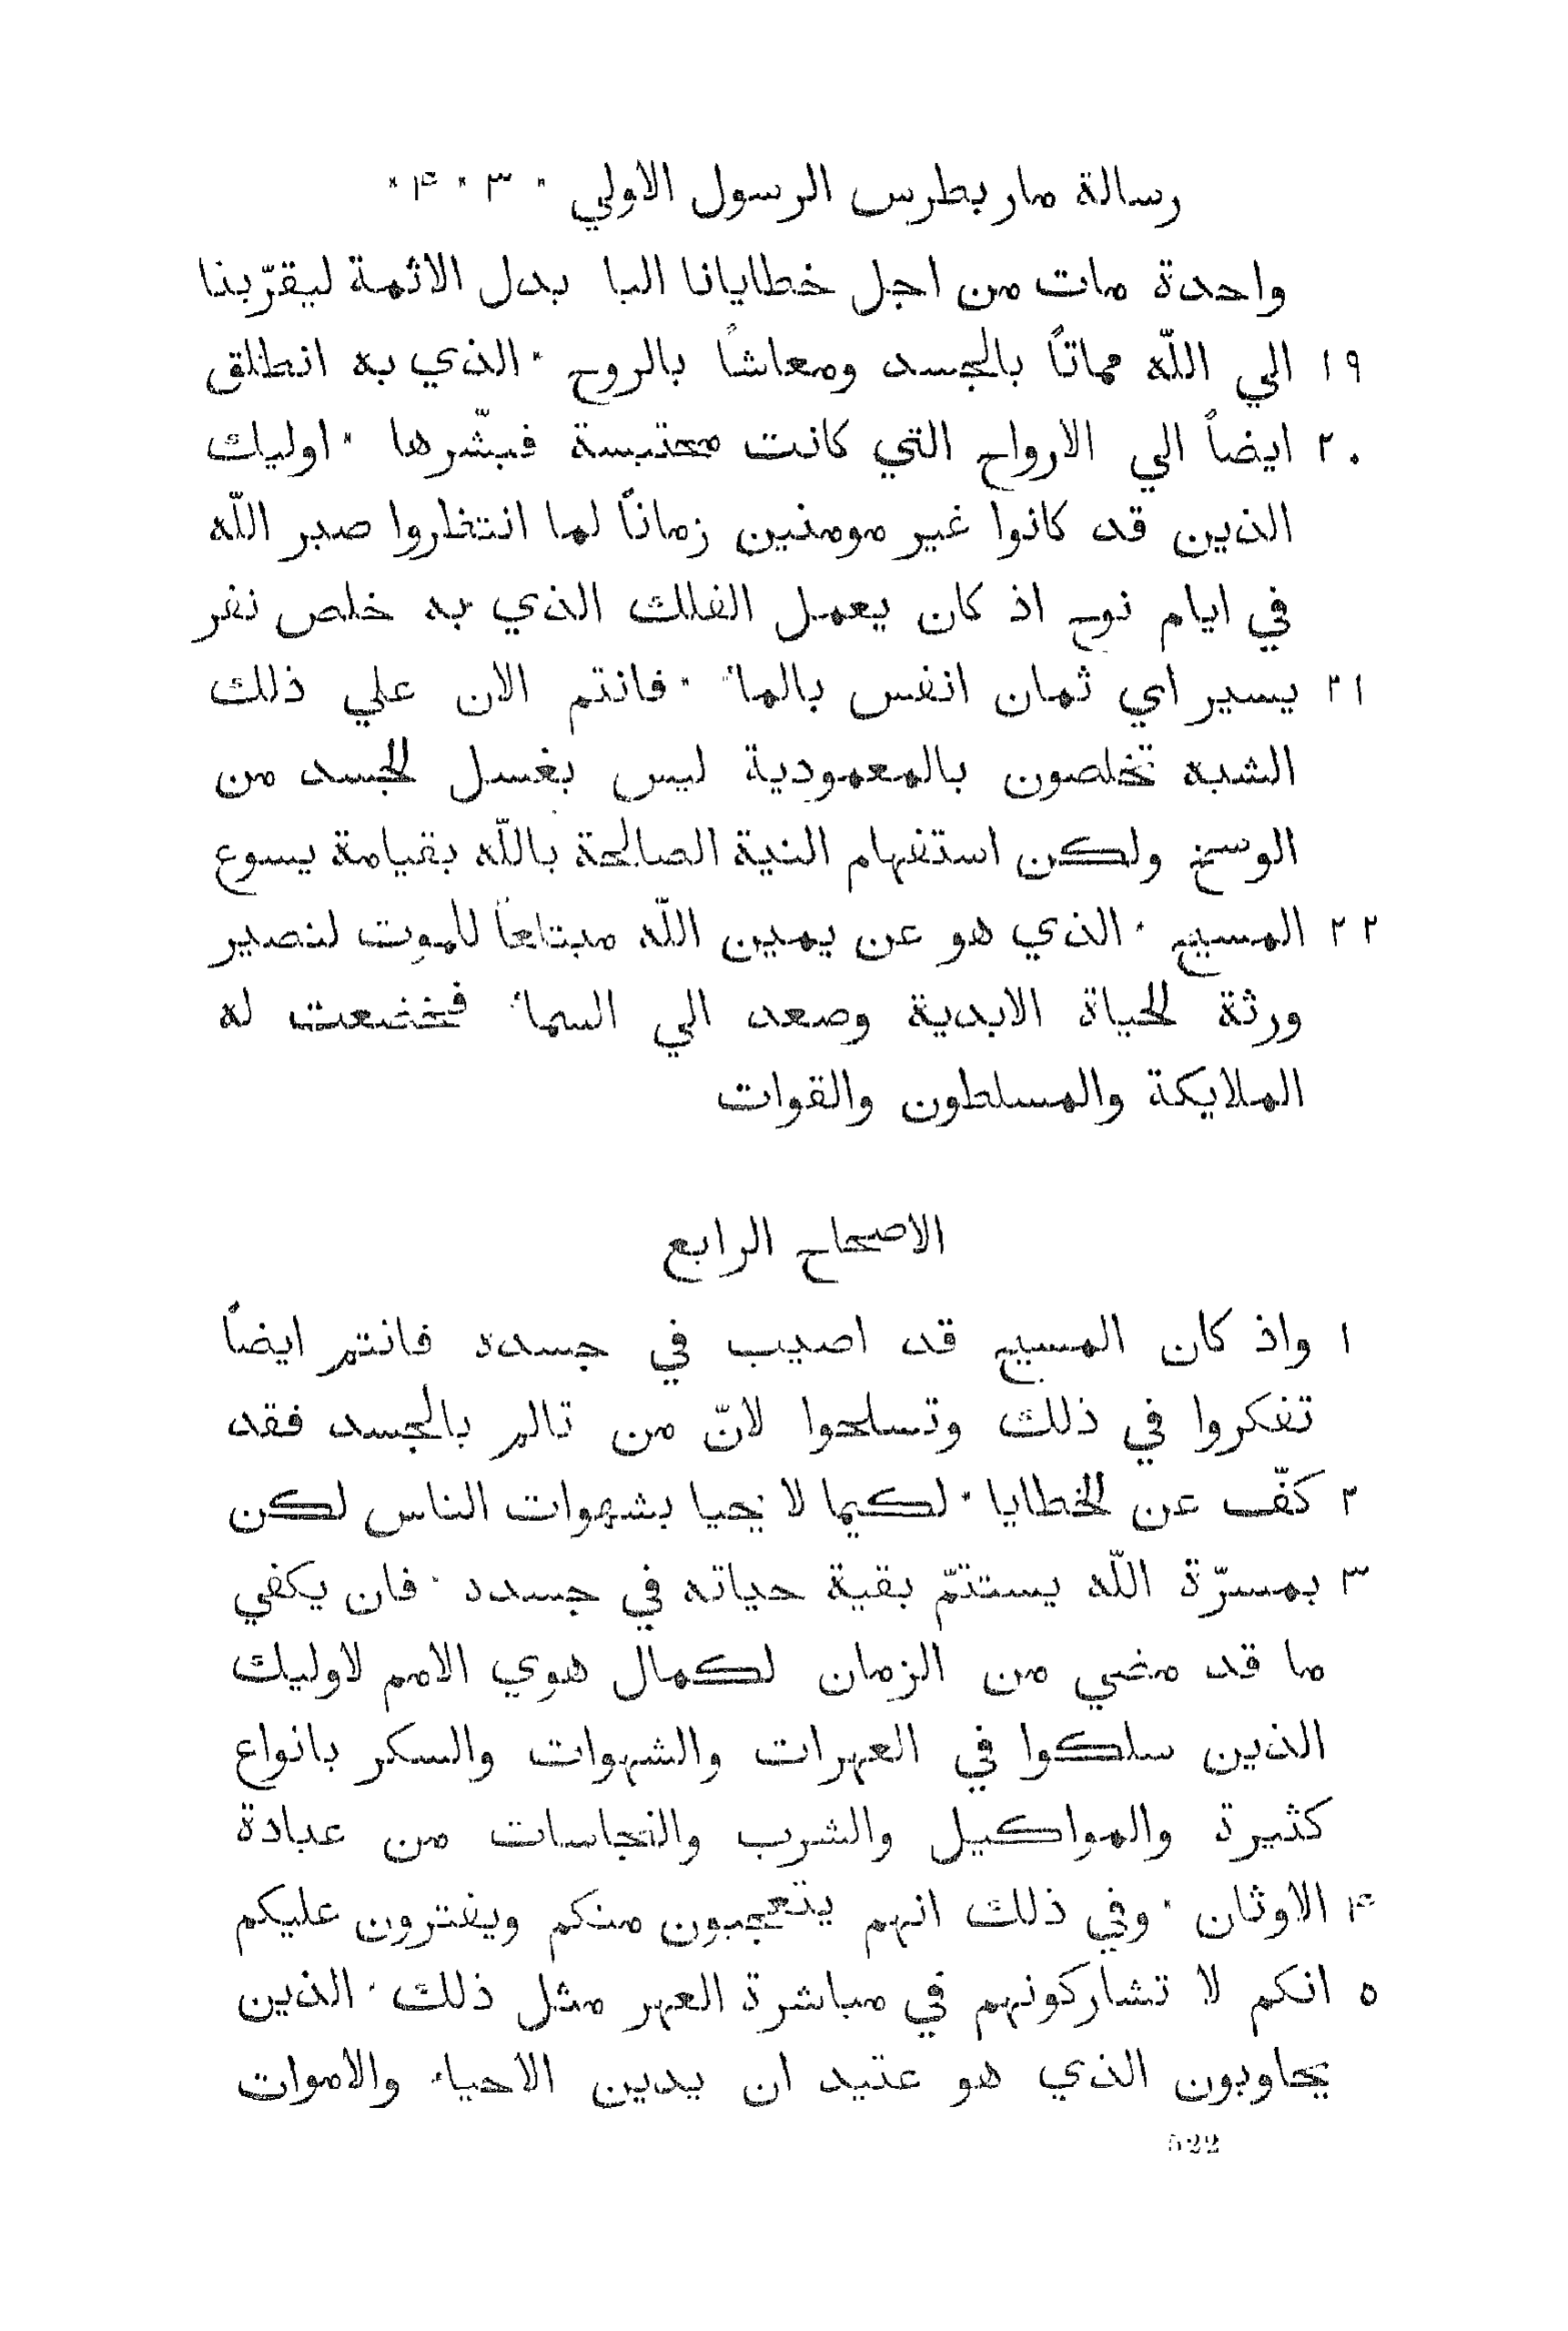 رسالة مار بطرس الرسول الاولي * ٣ * ۴ *
واحدة مات من اجل خطايانا البا بدل الاثمة ليقرّبنا
١٩ الي اللّه مماتاً بالجسد ومعاشاً بالروح * الذي به انطلق
٢٠ ايضاً الي الارواح التي كانت محتبسة فبشّرها * اوليك
الذين قد كانوا غير مومنين زماناً لما انتظروا صبر اللّه
في ايام نوح اذ كان يعمل الفلك الذي به خلص نفر
٢١ يسير اي ثمان انفس بالماء * فانتم الان علي ذلك
الشبه تخلصون بالمعمودية ليس بغسل الجسد من
الوسخ ولكن استفهام النية الصالحة باللّه بقيامة يسوع
٢٢ المسيح * الذي هو عن يمين اللّه مبتلعاً للموت لنصير
ورثة الحياة الابدية وصعد الي السماء فخضعت له
الملايكة والمسلطون والقوات
الاصحاح الرابع
١ واذ كان المسيح قد اصيب في جسده فانتم ايضاً
تفكروا في ذلك وتسلحوا لانّ من تالم بالجسد فقد
٢ كفّ عن الخطايا * لكيما لا يحيا بشهوات الناس لكن
٣ بمسرّة اللّه يستتمّ بقية حياته في جسده * فان يكفي
ما قد مضي من الزمان لكمال هوي الامم لاوليك
الذين سلكوا في العهرات والشهوات والسكر بانواع
كثيرة والمواكيل والشرب والنجاسات من عبادة
۴ الاوثان * وفي ذلك انهم يتعجبون منكم ويفترون عليكم
٥ انكم لا تشاركونهم في مباشرة العهر مثل ذلك * الذين
يجاوبون الذي هو عتيد ان يدين الاحياء والاموات
522